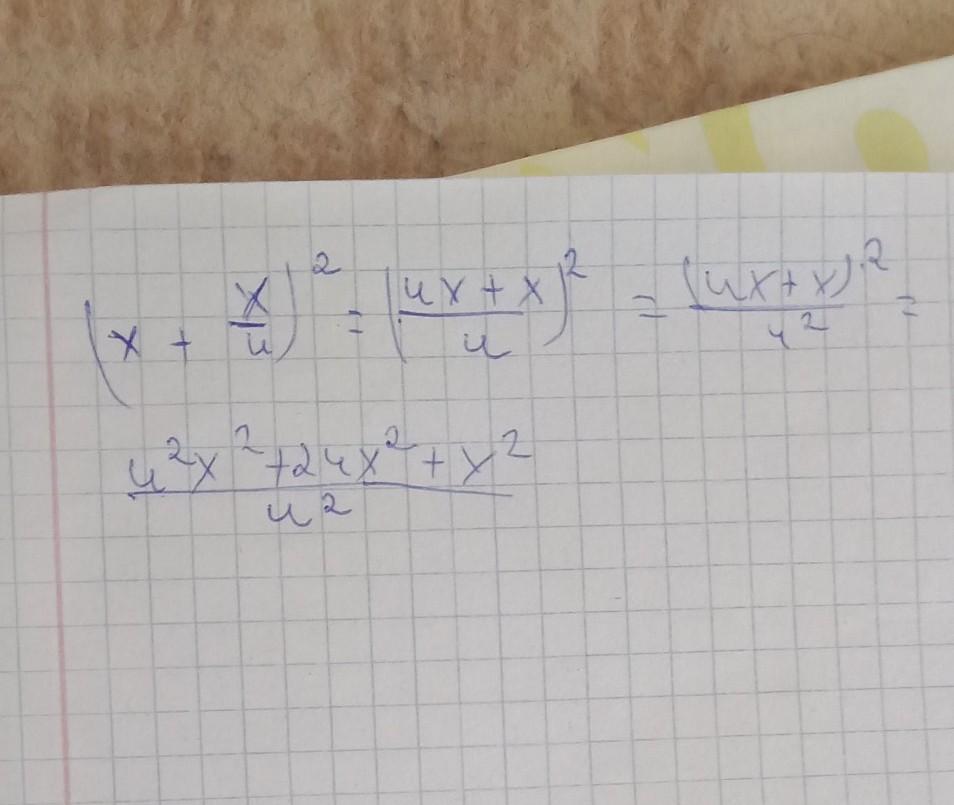 (x + x/u)² = ((ux + x)/u)² = (ux + x)²/u² =
(u²x² + 2ux² + x²)/u²